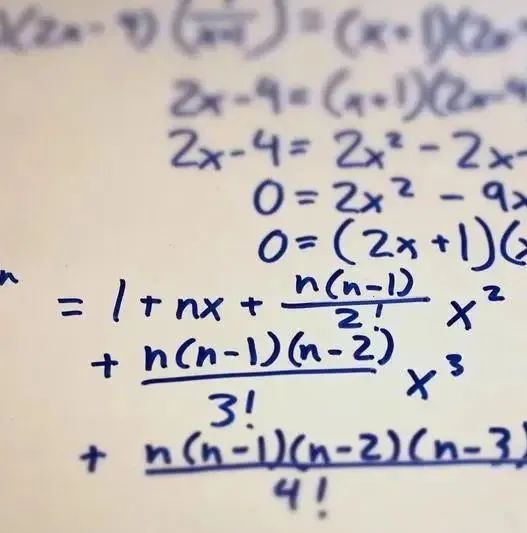 )(2x-9)( ) = (x+1)(2x-
2x-9=(x+1)(2x-9
2x-4= 2x² - 2x-
0 = 2x² - 9x
0= (2x+1)(x
n = 1 + nx + n(n-1)/2! x²
+ n(n-1)(n-2)/3! x³
+ n(n-1)(n-2)(n-3)/4!